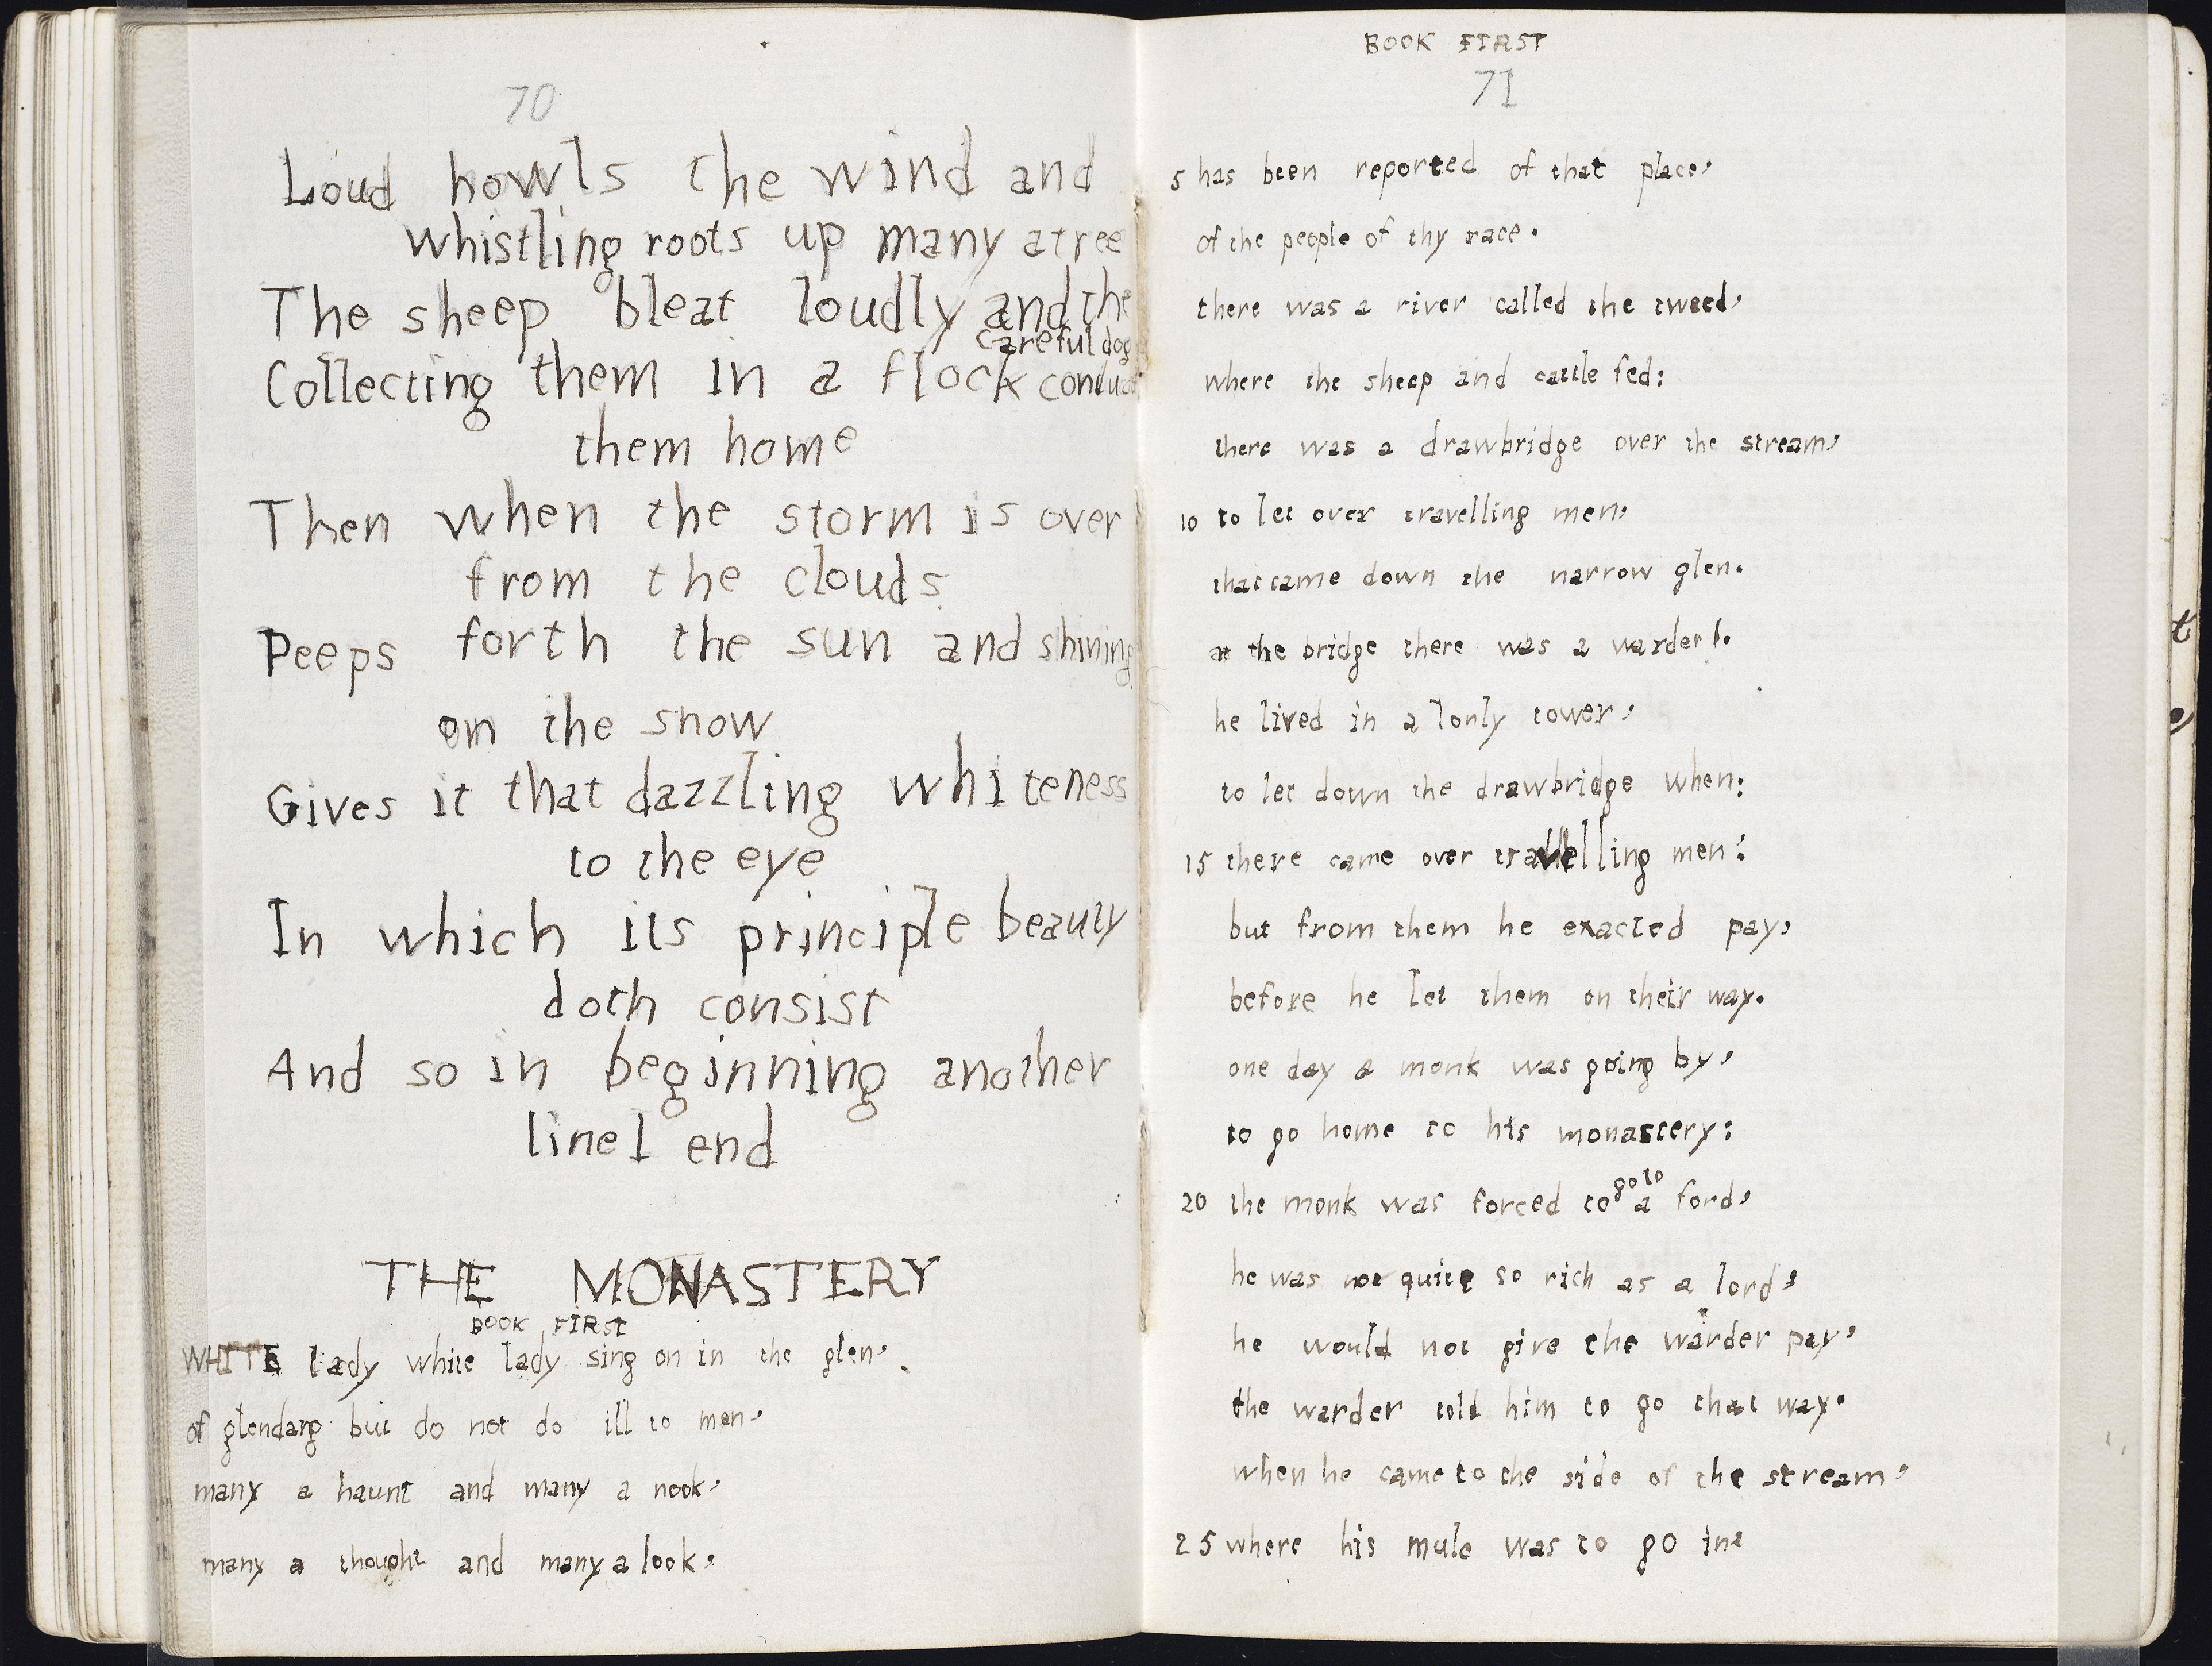 70
Loud howls the wind and
whistling roots up many a tree
The sheep bleat loudly and the
careful dog
Collecting them in a flock conduct
them home
Then when the storm is over
from the clouds
Peeps forth the sun and shining
on the snow
Gives it that dazzling whiteness
to the eye
In which its principle beauty
doth consist
And so in beginning another
line I end
THE MONASTERY
BOOK FIRST
WHITE lady white lady sing on in the glen,
of glendarg but do not do ill to men,
many a haunt and many a nook,
many a thought and many a look,
BOOK FIRST
71
5 has been reported of that place,
of the people of thy race.
there was a river called the tweed,
where the sheep and cattle fed:
there was a drawbridge over the stream,
10 to let over travelling men,
that came down the narrow glen.
at the bridge there was a warder.
he lived in a lonly tower,
to let down the drawbridge when:
15 there came over travelling men:
but from them he exacted pay,
before he let them on their way.
one day a monk was going by,
to go home to his monastery:
go to
20 the monk was forced to a ford,
he was not quite so rich as a lord,
he would not give the warder pay,
the warder told him to go that way.
when he came to the side of the stream,
25 where his mule was to go in,